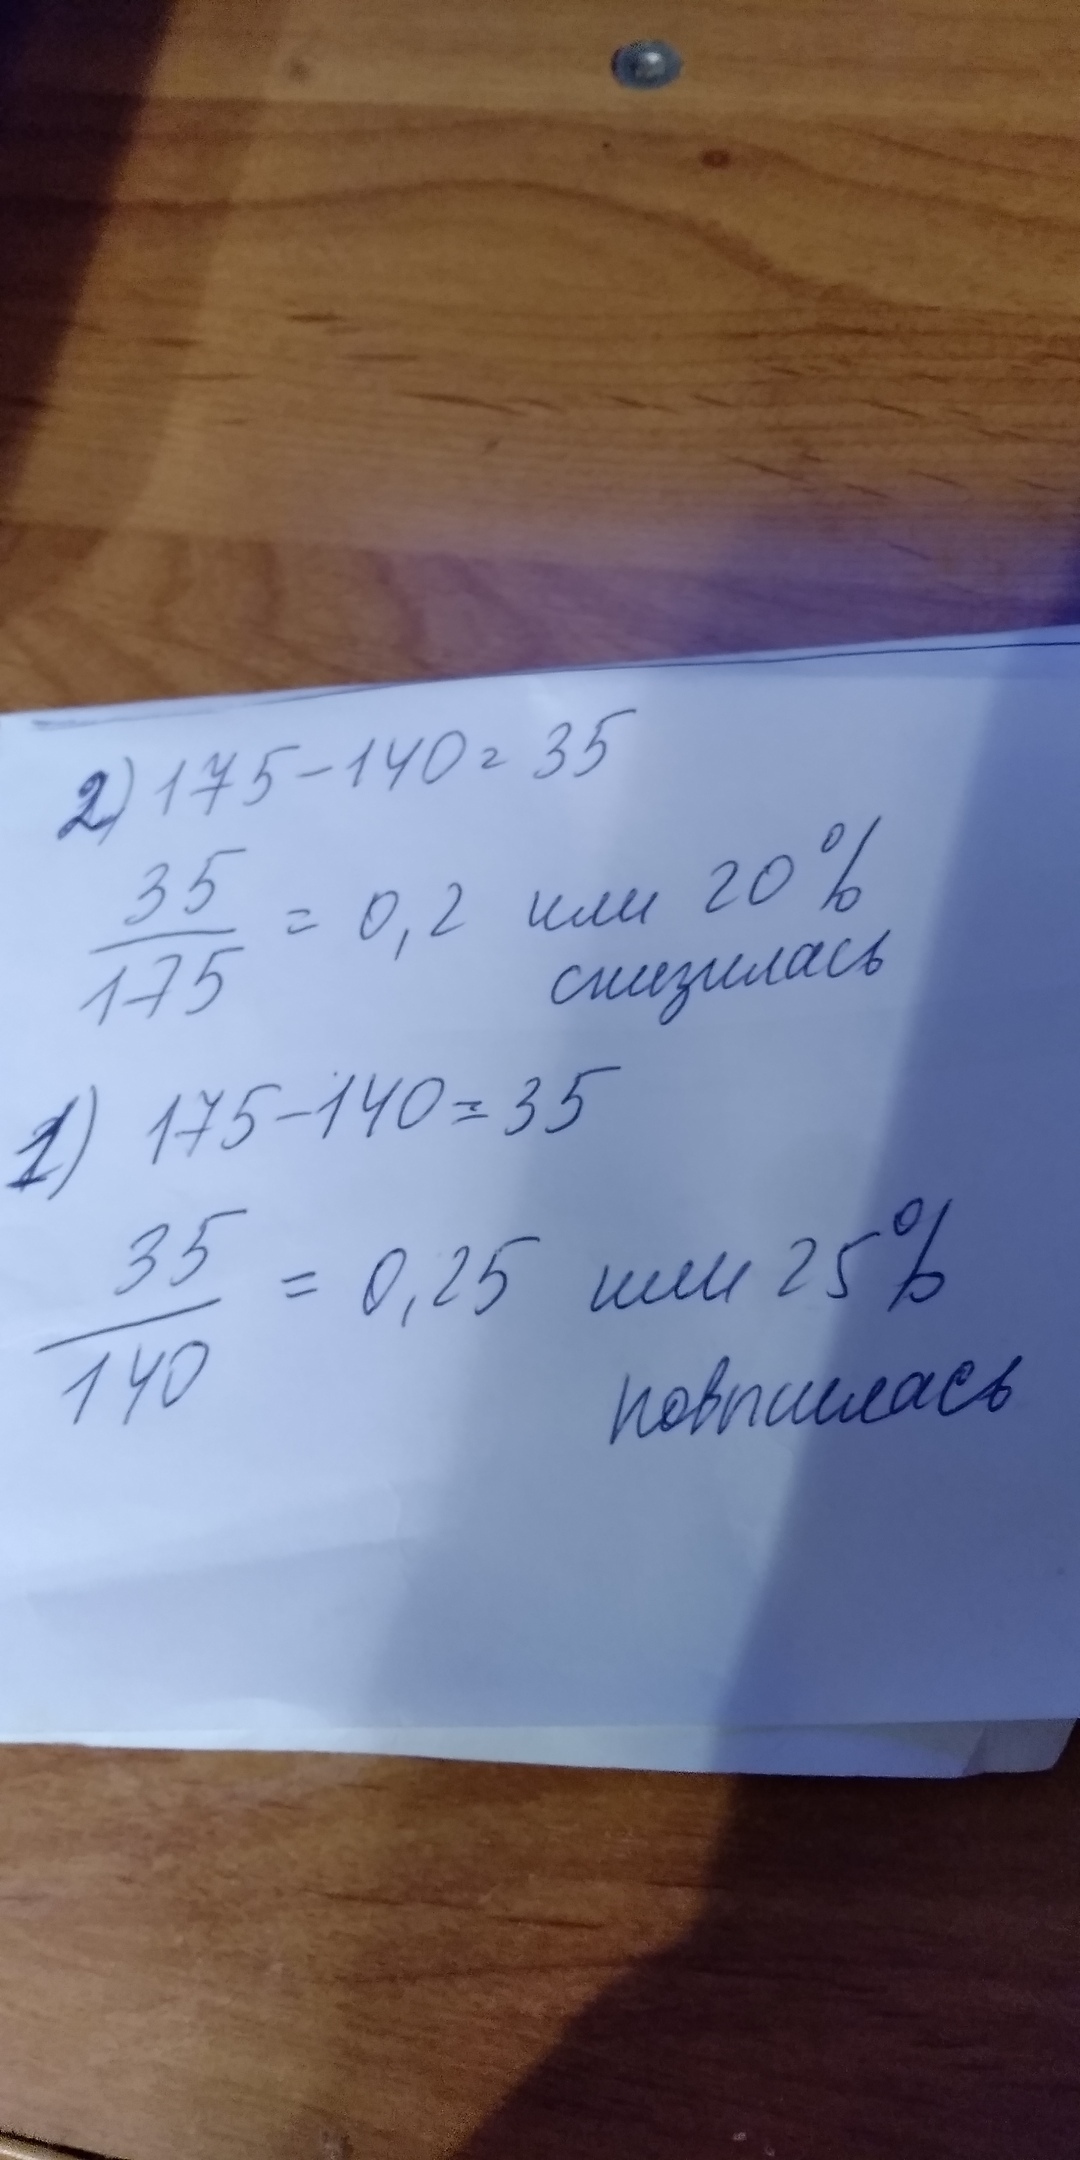 2) 175-140=35
35
175
= 0,2 или 20%
снизилась
1) 175-140=35
35
140
= 0,25 или 25%
повысилась